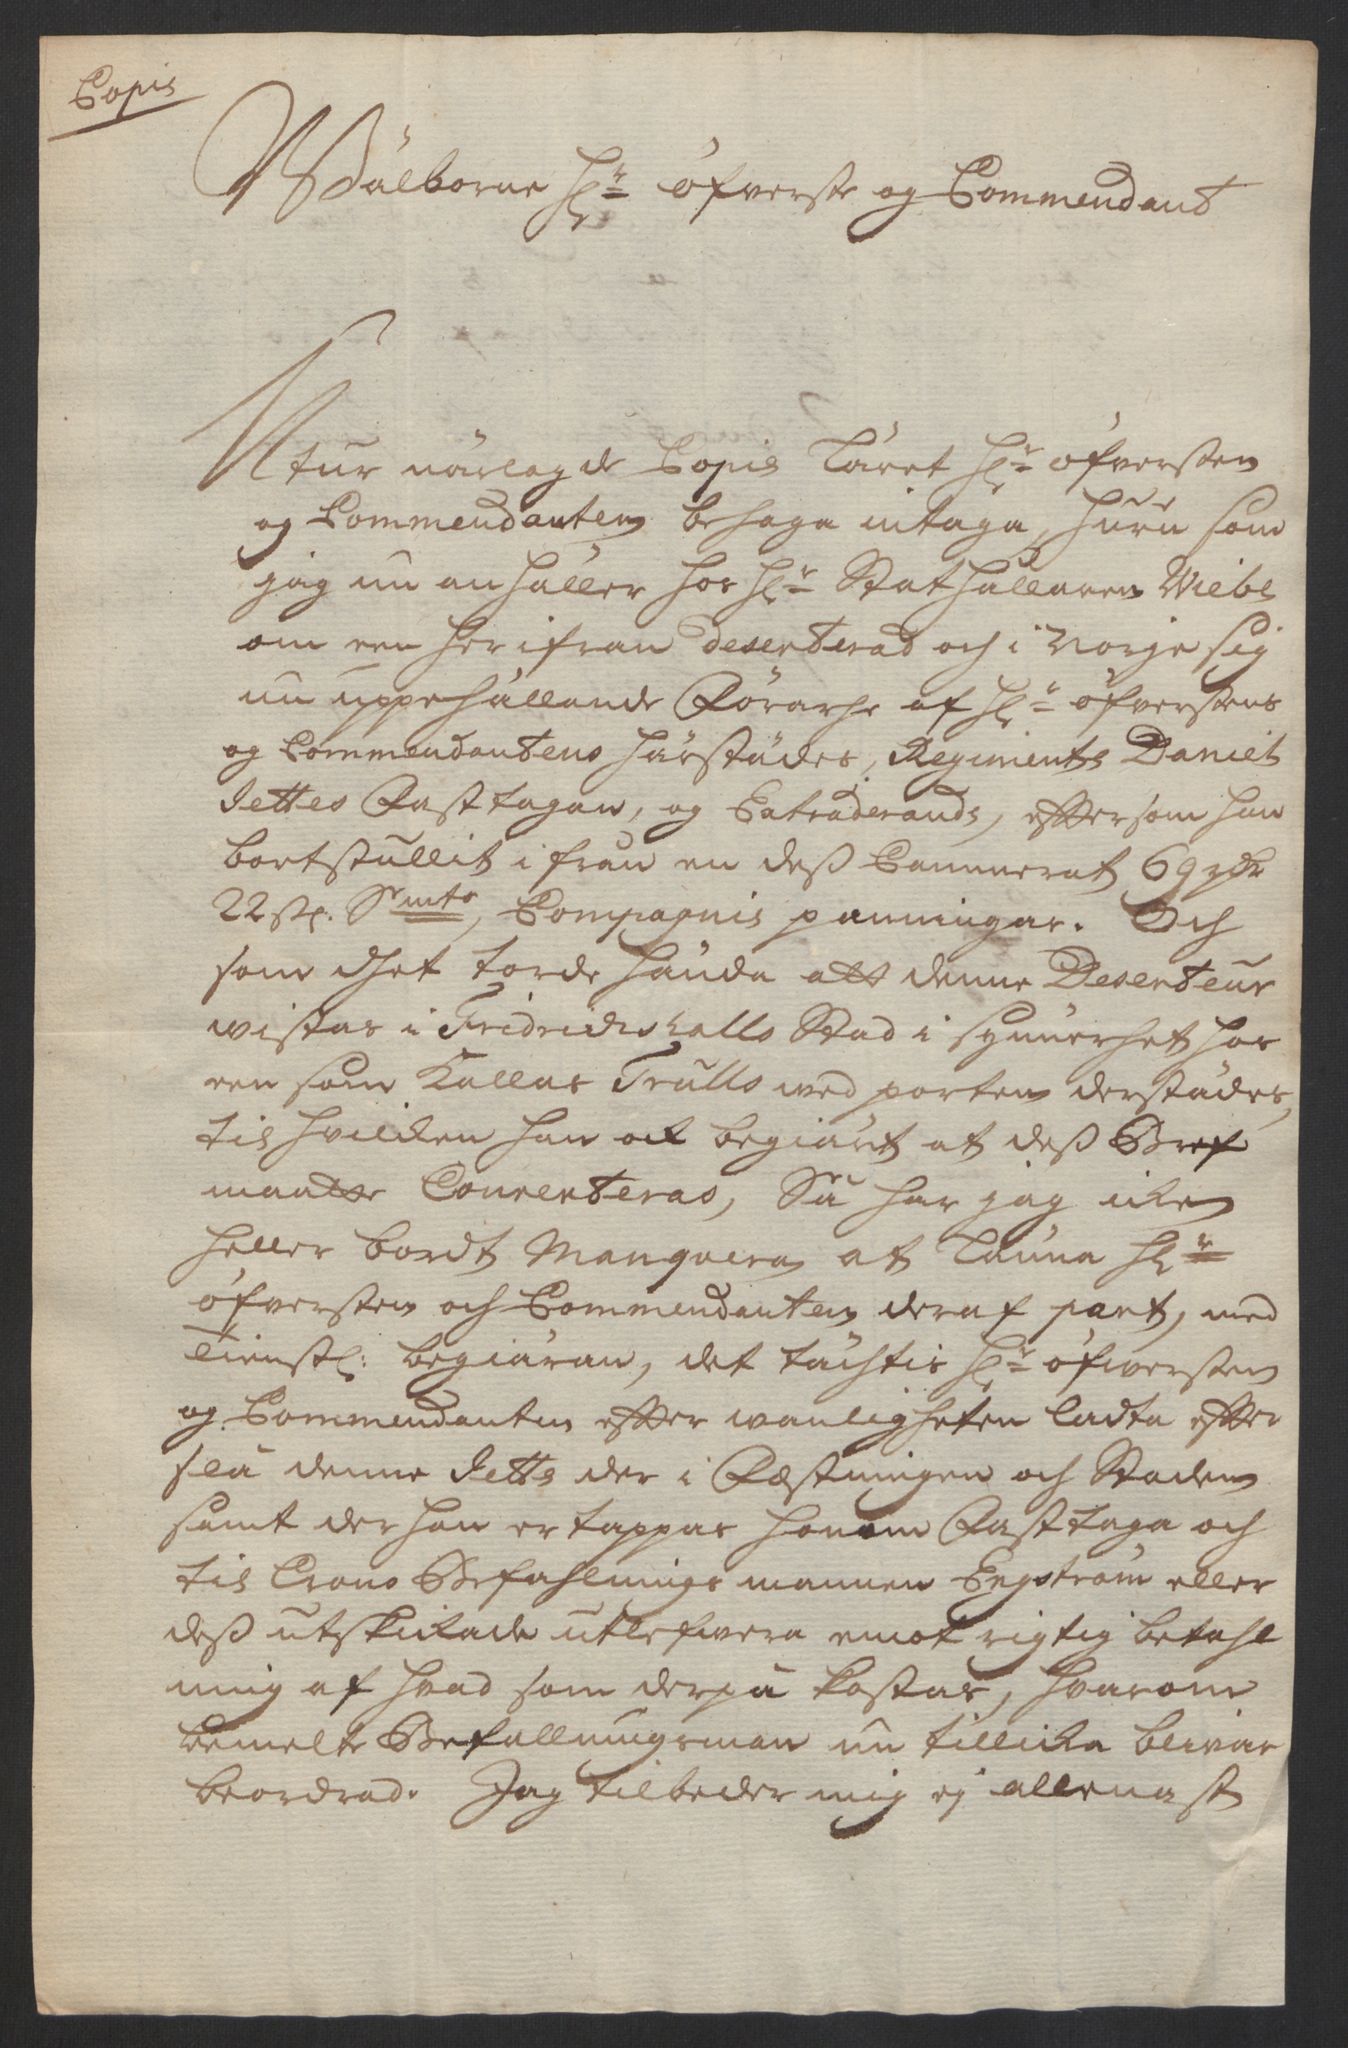 Copie
Wälborne Hr öfverste og Commendant
Utur närlagde Copie täcket Hr öfversten
og Commendanten behaga intaga, huru som
jag nu anhåller hos Hr Stathållaren Wiebe
om een herifrån deserterad och i Norje sig
nu uppehållande Förare af Hr öfverstens
og Commendantens härstädes, Regimente Daniel
Jettes Fasttagan, og Extraderande, efftersom han
bortstullit ifrån en dess Cammerat 69 rdr
22 st. Smt, Compagnie panningar. Och
som dhet torde hända att denne Deserteur
wistas i Fridrichshalls Stad i synnerhet hos
een som kallas Trulls wed porten derstädes,
til hvilken han ok begiärt at dess Bref
maatte Couverteras, Så har jag iken
heller bordt Manquera at lämna Hr
öfversten och Commendanten deraf part, med
tienstl: begiäran, det täcktis Hr öfwersten
og Commendanten effter wanligheten ladta effter
slå denne Jette der i Fæstningen och Staden
samt der han ertappas honom Fasttaga och
til Crono Befahlningsmannen Engström eller
dess utskikade utlefwera emot rigtig betahl
ning af hvad som derpå kostas, hvarom
bemelte Befallningsman nu tillika blivar
beordrad. Jag tilbeder mig ej allenast